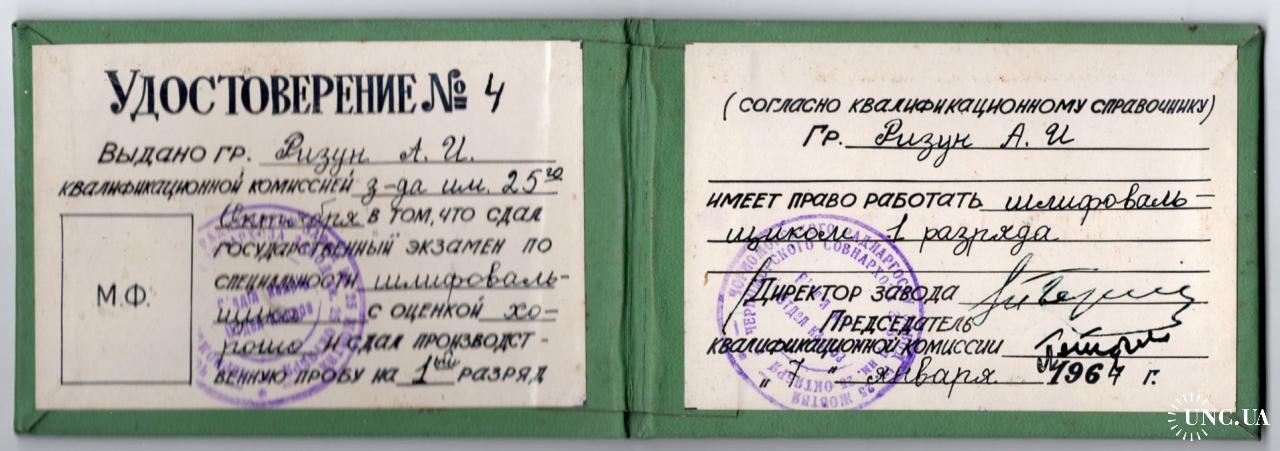 УДОСТОВЕРЕНИЕ № 4
ВЫДАНО ГР. Ризун А. И.
КВАЛИФИКАЦИОННОЙ КОМИССИЕЙ з-да им. 25го
Октября В ТОМ, ЧТО СДАЛ
ГОСУДАРСТВЕННЫЙ ЭКЗАМЕН ПО
СПЕЦИАЛЬНОСТИ шлифоваль-
щика С ОЦЕНКОЙ хо-
рошо И СДАЛ ПРОИЗВОДСТ-
ВЕННУЮ ПРОБУ НА 1ый РАЗРЯД
М.Ф.
(СОГЛАСНО КВАЛИФИКАЦИОННОМУ СПРАВОЧНИКУ)
ГР. Ризун А. И
ИМЕЕТ ПРАВО РАБОТАТЬ шлифоваль-
щиком 1 разряда
ДИРЕКТОР ЗАВОДА
ПРЕДСЕДАТЕЛЬ
КВАЛИФИКАЦИОННОЙ КОМИССИИ
„ 7 " января 1967 г.
ОТДЕЛ КАДРОВ
UNC.UA